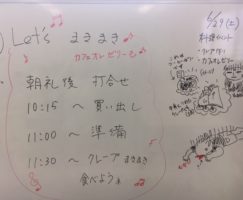 Let's まきまき
カフェオレゼリーも
朝礼後 打合せ
10:15 〜 買い出し
11:00 〜 準備
11:30 〜 クレープまきまき
食べよう
6/29(土)
料理イベント
・クレープ作り
・カフェオレゼリー